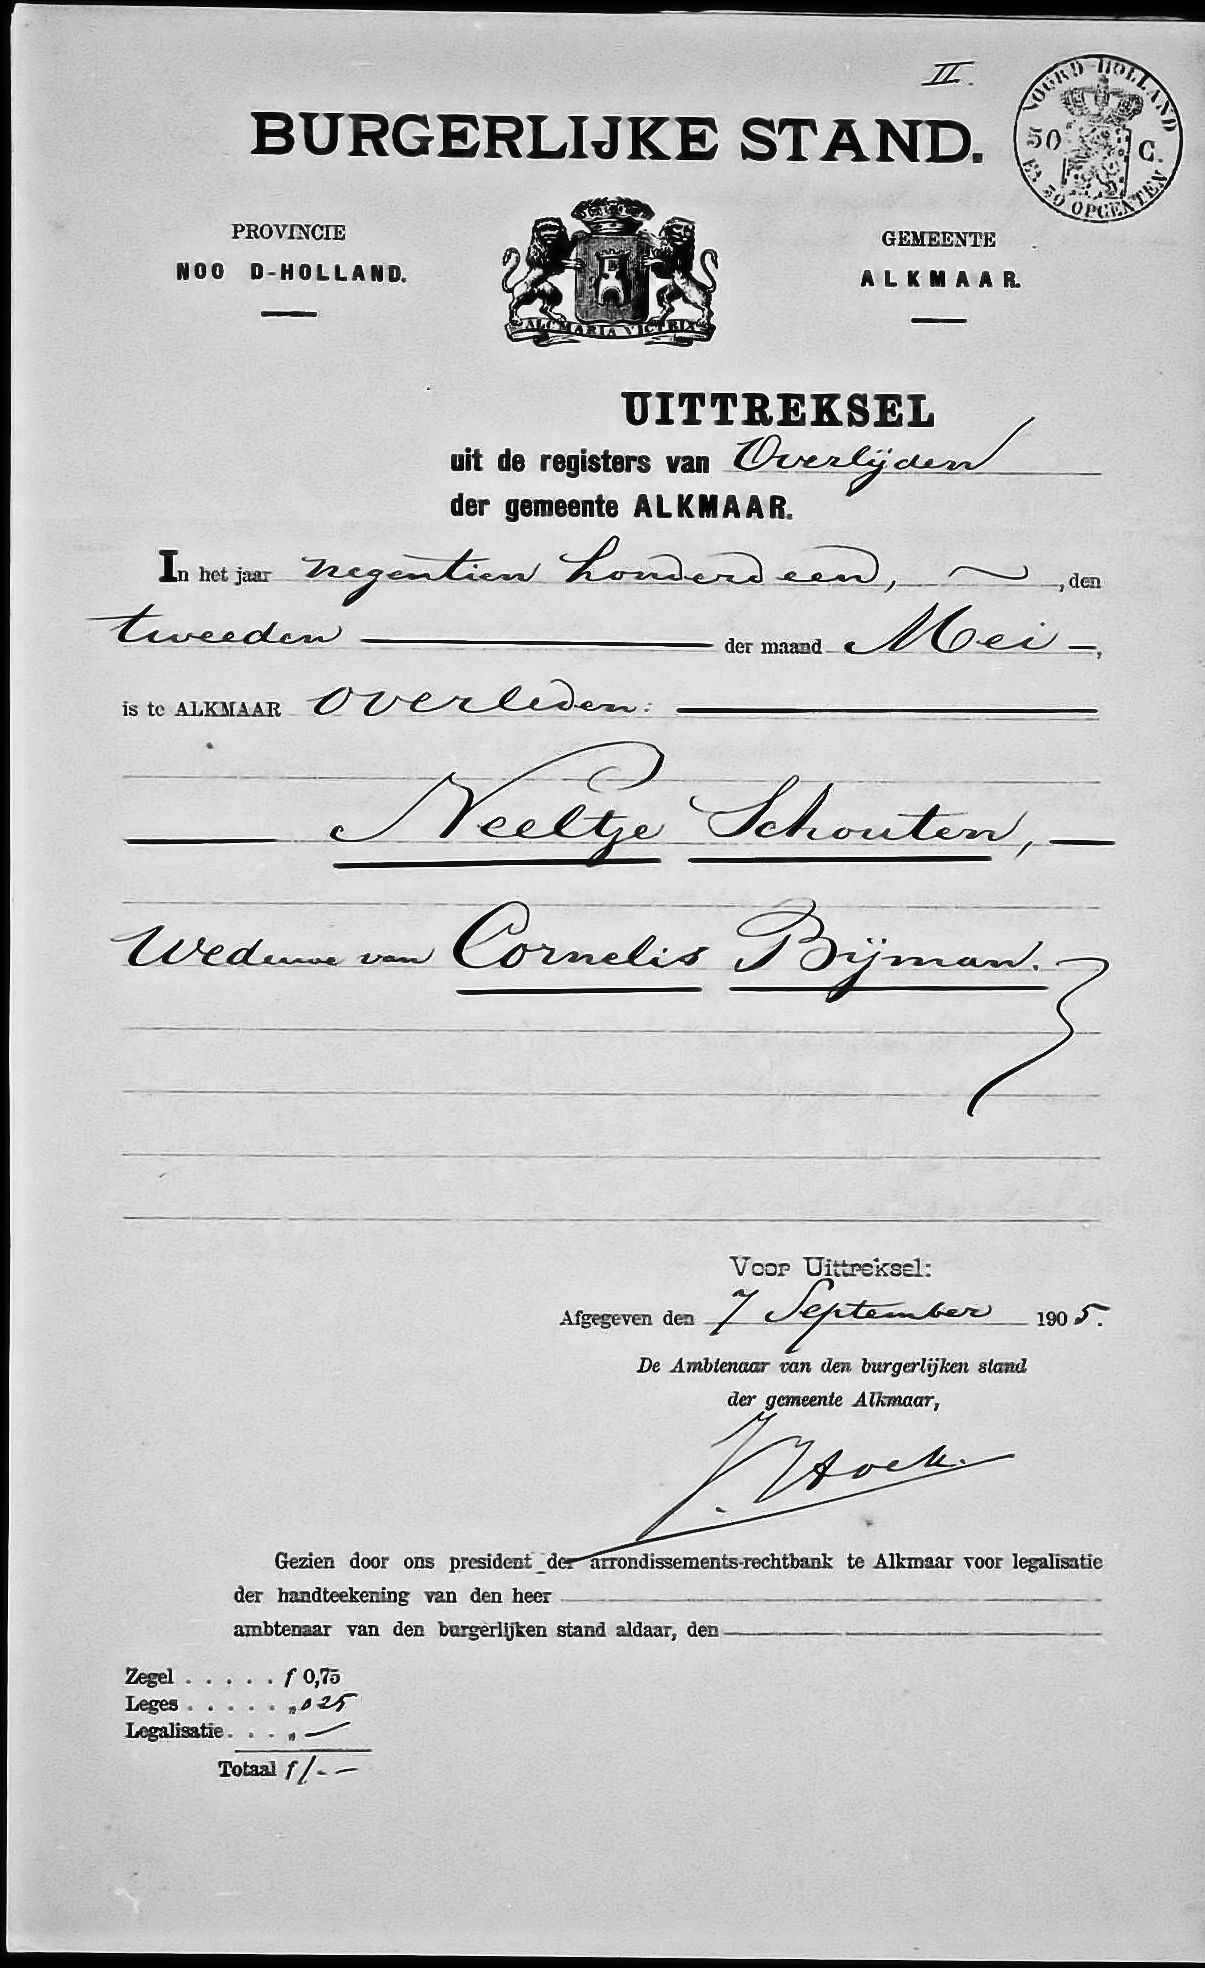 II.
NOORD-HOLLAND
50 C.
EN 50 OPCENTEN
BURGERLIJKE STAND.
PROVINCIE
NOO D-HOLLAND.
GEMEENTE
ALKMAAR.
ALCMARIA VICTRIX
UITTREKSEL
uit de registers van Overlijden
der gemeente ALKMAAR.
In het jaar negentien honderd een, , den
tweeden der maand Mei —,
is te ALKMAAR overleden:
Neeltje Schouten,
Weduwe van Cornelis Bijman.
Voor Uittreksel:
Afgegeven den 7 September 1905.
De Ambtenaar van den burgerlijken stand
der gemeente Alkmaar,
Gezien door ons president der arrondissements-rechtbank te Alkmaar voor legalisatie
der handteekening van den heer
ambtenaar van den burgerlijken stand aldaar, den
Zegel . . . . . f 0,75
Leges . . . . . „ 0 25
Legalisatie . . . „ —
Totaal f 1.—